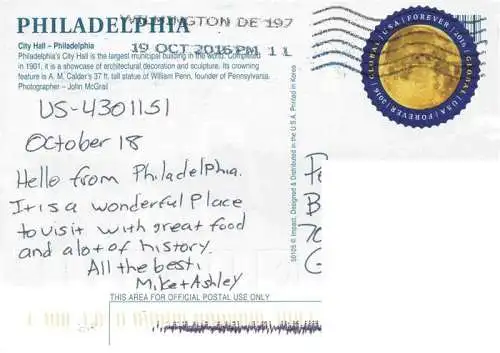 PHILADELPHIA
WILMINGTON DE 197
19 OCT 2016 PM 11
City Hall – Philadelphia
Philadelphia's City Hall is the largest municipal building in the world. Completed
in 1901, it is a showcase of architectural decoration and sculpture. Its crowning
feature is A. M. Calder's 37 ft. tall statue of William Penn, founder of Pennsylvania.
Photographer – John McGrail
GLOBAL | USA | FOREVER | 2016 | GLOBAL | USA | FOREVER | 2016
US-4301151
October 18
Hello from Philadelphia.
It is a wonderful Place
to visit with great food
and alot of history.
All the best,
Mike + Ashley
50105 © Impact, Designed & Distributed in the U.S.A. Printed in Korea
B
70
THIS AREA FOR OFFICIAL POSTAL USE ONLY